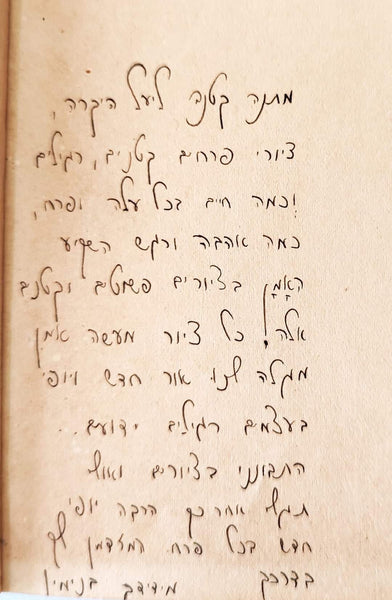 מתנה קטנה ליעל היקרה,
ציורי פרחים קטנים, רגילים
וכמה חיים בכל עלה ופרח,
כמה אהבה ורגש השקיע
הָאָמָן בציורים פשוטים וקטנים
אלה! כל ציור מעשה אמן
מגלה לנו אור חדש ויופי
בעצמים רגילים ידועים..
התבונני בציורים ואולי
תגלי אחר כך הרבה יופי
חדש בכל פרח המזדמן לך
בדרכך מידידך בנימין